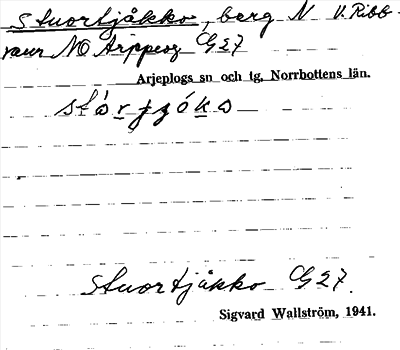 Stuortjåkko, berg N V. Ribb-
raur NO Arppesog G27
Arjeplogs sn och tg, Norrbottens län.
Stuortjåkko G27.
Sigvard Wallström, 1941.